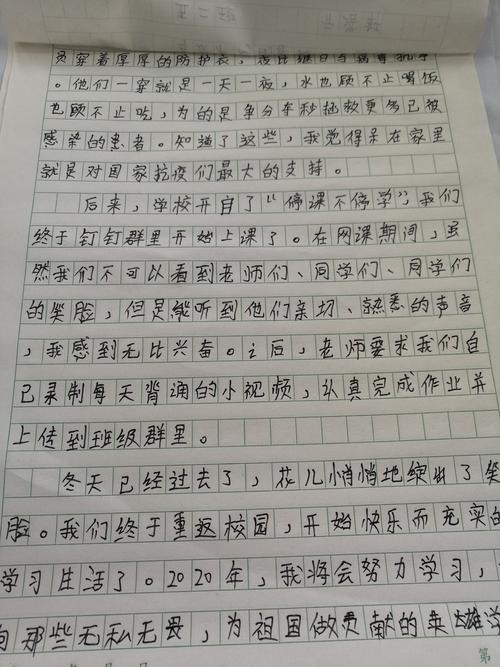 员穿着厚厚的防护衣，夜以继日与病毒抗争
。他们一穿就是一天一夜，水也顾不上喝饭
也顾不上吃，为的是争分夺秒拯救更多已被
感染的患者。知道了这些，我觉得呆在家里
就是对国家抗疫们最大的支持。
后来，学校开自了“停课不停学”，我们
终于钉钉群里开始上课了。在网课期间，虽
然我们不可以看到老师们、同学们、同学们
的笑脸，但是能听到他们亲切、熟悉的声音
，我感到无比兴奋。之后，老师要求我们自
己录制每天背诵的小视频，认真完成作业并
上传到班级群里。
冬天已经过去了，花儿悄悄地绽出了笑
脸。我们终于重返校园，开始快乐而充实的
学习生活了。2020年，我将会努力学习，
向那些无私无畏，为祖国做贡献的英雄学
第